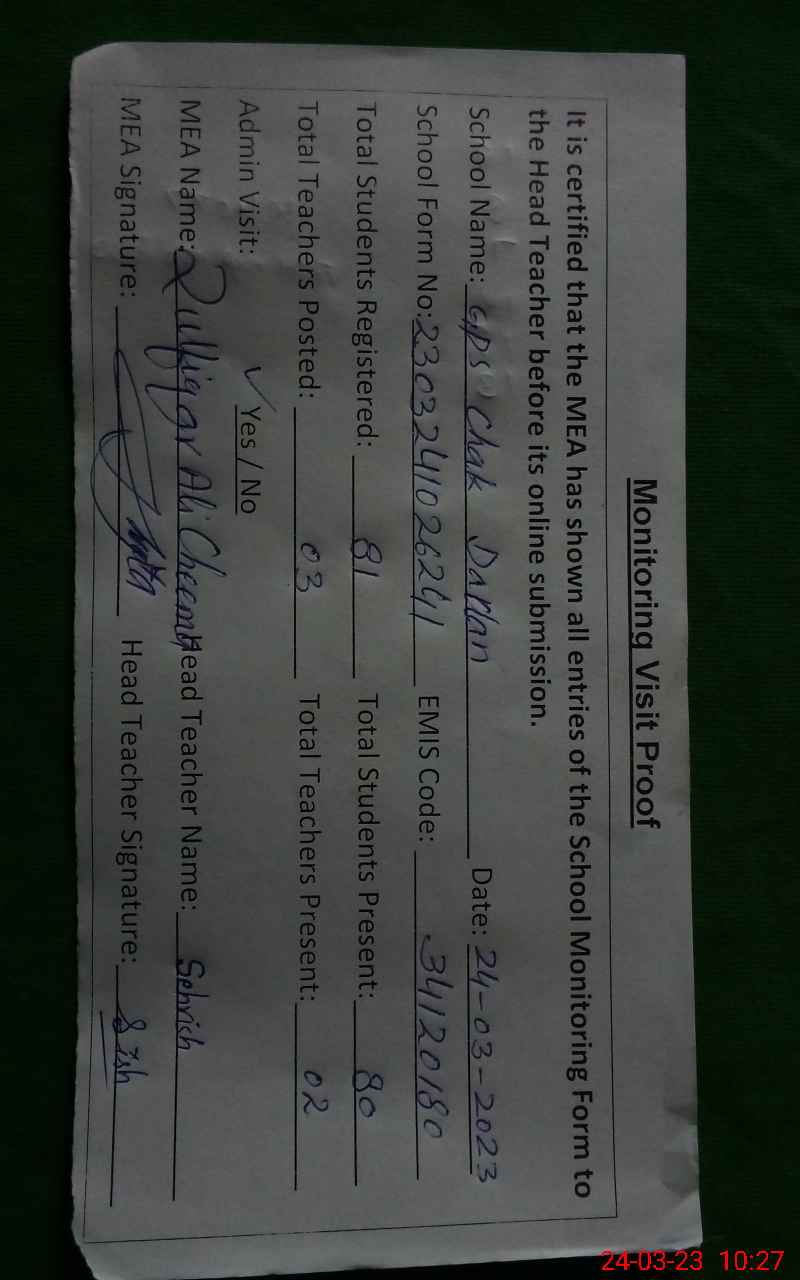 Monitoring Visit Proof
It is certified that the MEA has shown all entries of the School Monitoring Form to
the Head Teacher before its online submission.
School Name: GPS Chak Darlan Date: 24-03-2023
School Form No: 2303241026241 EMIS Code: 34120180
Total Students Registered: 81 Total Students Present: 80
Total Teachers Posted: 03 Total Teachers Present: 02
Admin Visit: ✓ Yes / No
MEA Name: Zulfiqar Ali Cheema Head Teacher Name: Sehrish
MEA Signature: Head Teacher Signature:
24-03-23 10:27